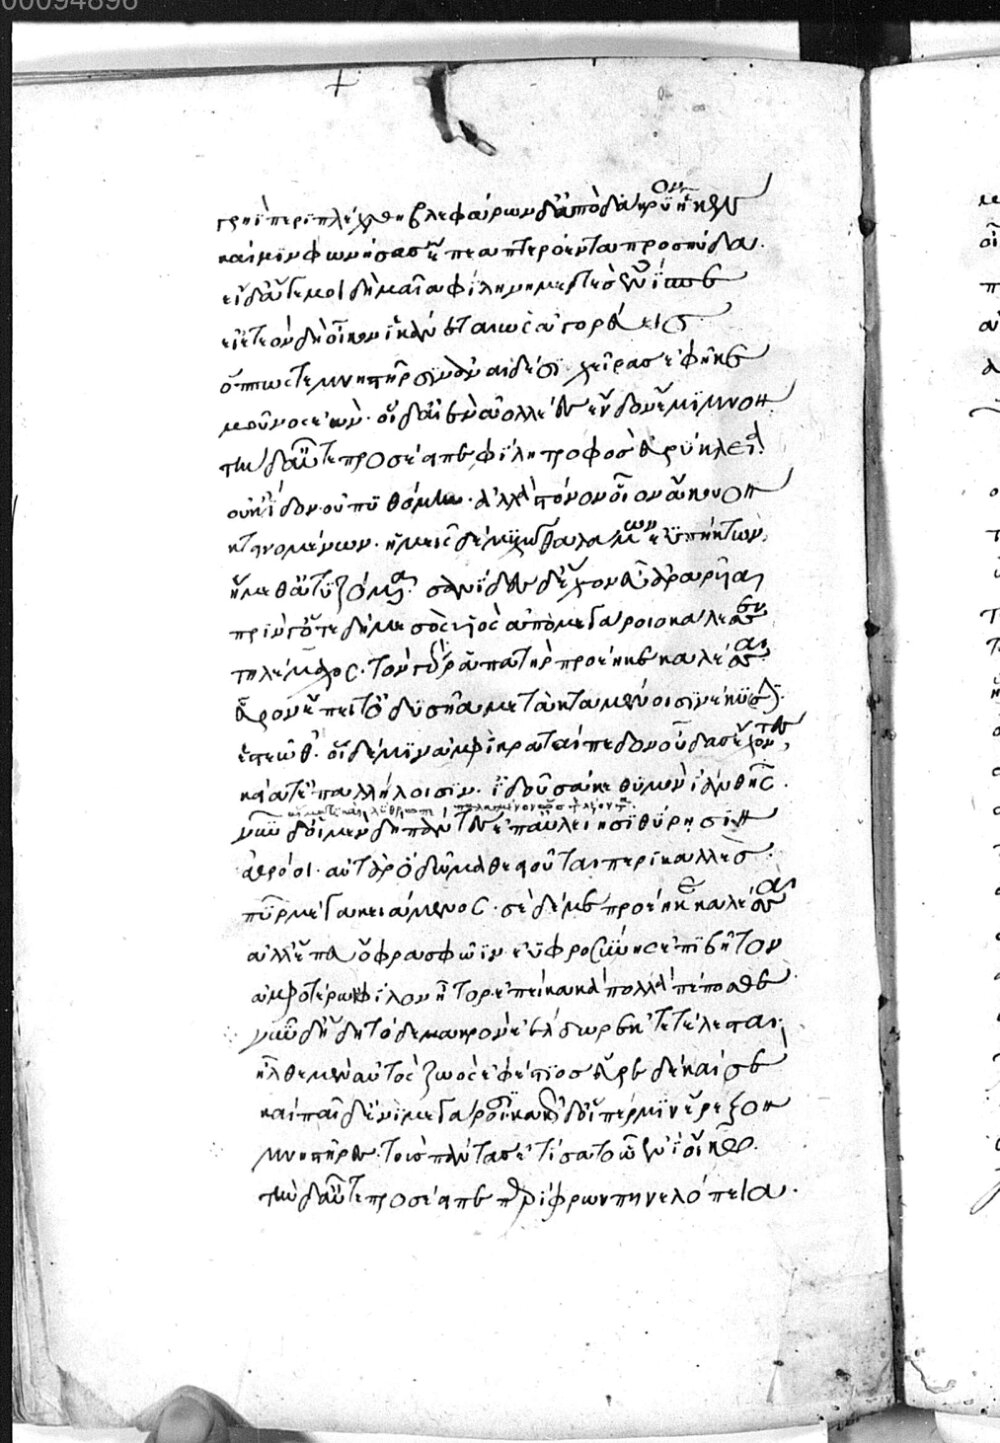 γρηῒ περιπλέχθη βλεφάρων δ' ἀπὸ δάκρυον ἧκεν
καί μιν φωνήσασ' ἔπεα πτερόεντα προσηύδα.
εἰ δ' ἄγε μοι δὴ μαῖα φίλη νημερτὲς ἐνίσπε
εἰ ἐτεὸν δὴ οἶκον ἱκάνεται ὡς ἀγορεύεις
ὅππως γε μνηστῆρσιν ἀναιδέσι χεῖρας ἐφῆκε
μοῦνος ἐὼν· οἱ δ' αἰὲν ἀολλέες ἔνδον ἔμιμνον
τὴν δ' αὖτε προσέειπε φίλη τροφὸς εὐρύκλεια.
οὐκ ἴδον. οὐ πυθόμην. ἀλλὰ στόνον οἶον ἄκουον
κτεινομένων. ἡμεῖς δὲ μυχῷ θαλάμων εὐπήκτων,
ἥμεθ' ἀτυζόμεναι. σανίδες δ' ἔχον εὖ ἀραρυῖαι
πρίν γ' ὅτε δή με σὸς υἱὸς ἀπὸ μεγάροιο κάλεσσεν
τηλέμαχος. τὸν γάρ ῥα πατὴρ προέηκε καλέσσαι.
εὗρον ἔπειτ' ὀδυσῆα μετὰ κταμένοισιν νέκυσσιν.
ἑσταόθ'. οἱ δέ μιν ἀμφὶ κραταίπεδον οὖδας ἔχοντες,
κείατ' ἐπ' ἀλλήλοισιν. ἰδοῦσά κε θυμὸν ἰάνθης.
αἵματι καὶ λύθρῳ πεπαλαγμένον ὥστε λέοντα.
νῦν δ' οἱ μὲν δὴ πάντες ἐπ' αὐλείῃσι θύρῃσιν
ἀθρόοι. αὐτὰρ ὁ δῶμα θεειοῦται περικαλλές.
πῦρ μέγα κειάμενος. σὲ δέ με προέηκε καλέσσαι
ἀλλ' ἕπευ ὄφρα σφῶϊν ἐϋφροσύνης ἐπιβῆτον
ἀμφοτέρω φίλον ἦτορ. ἐπεὶ κακὰ πολλὰ πέποσθε
νῦν δ' ἤδη τόδε μακρὸν ἐέλδωρ ἐκτετέλεσται.
ἦλθε μὲν αὐτὸς ζωὸς ἐφέστιος εὗρε δὲ καὶ σὲ
καὶ παῖδ' ἐνὶ μεγάροισι κακῶς δ' οἵ πέρ μιν ἔρεζον
μνηστῆρες. τοὺς πάντας ἐτίσατο ᾧ ἐνὶ οἴκῳ.
τὴν δ' αὖτε προσέειπε περίφρων πηνελόπεια.